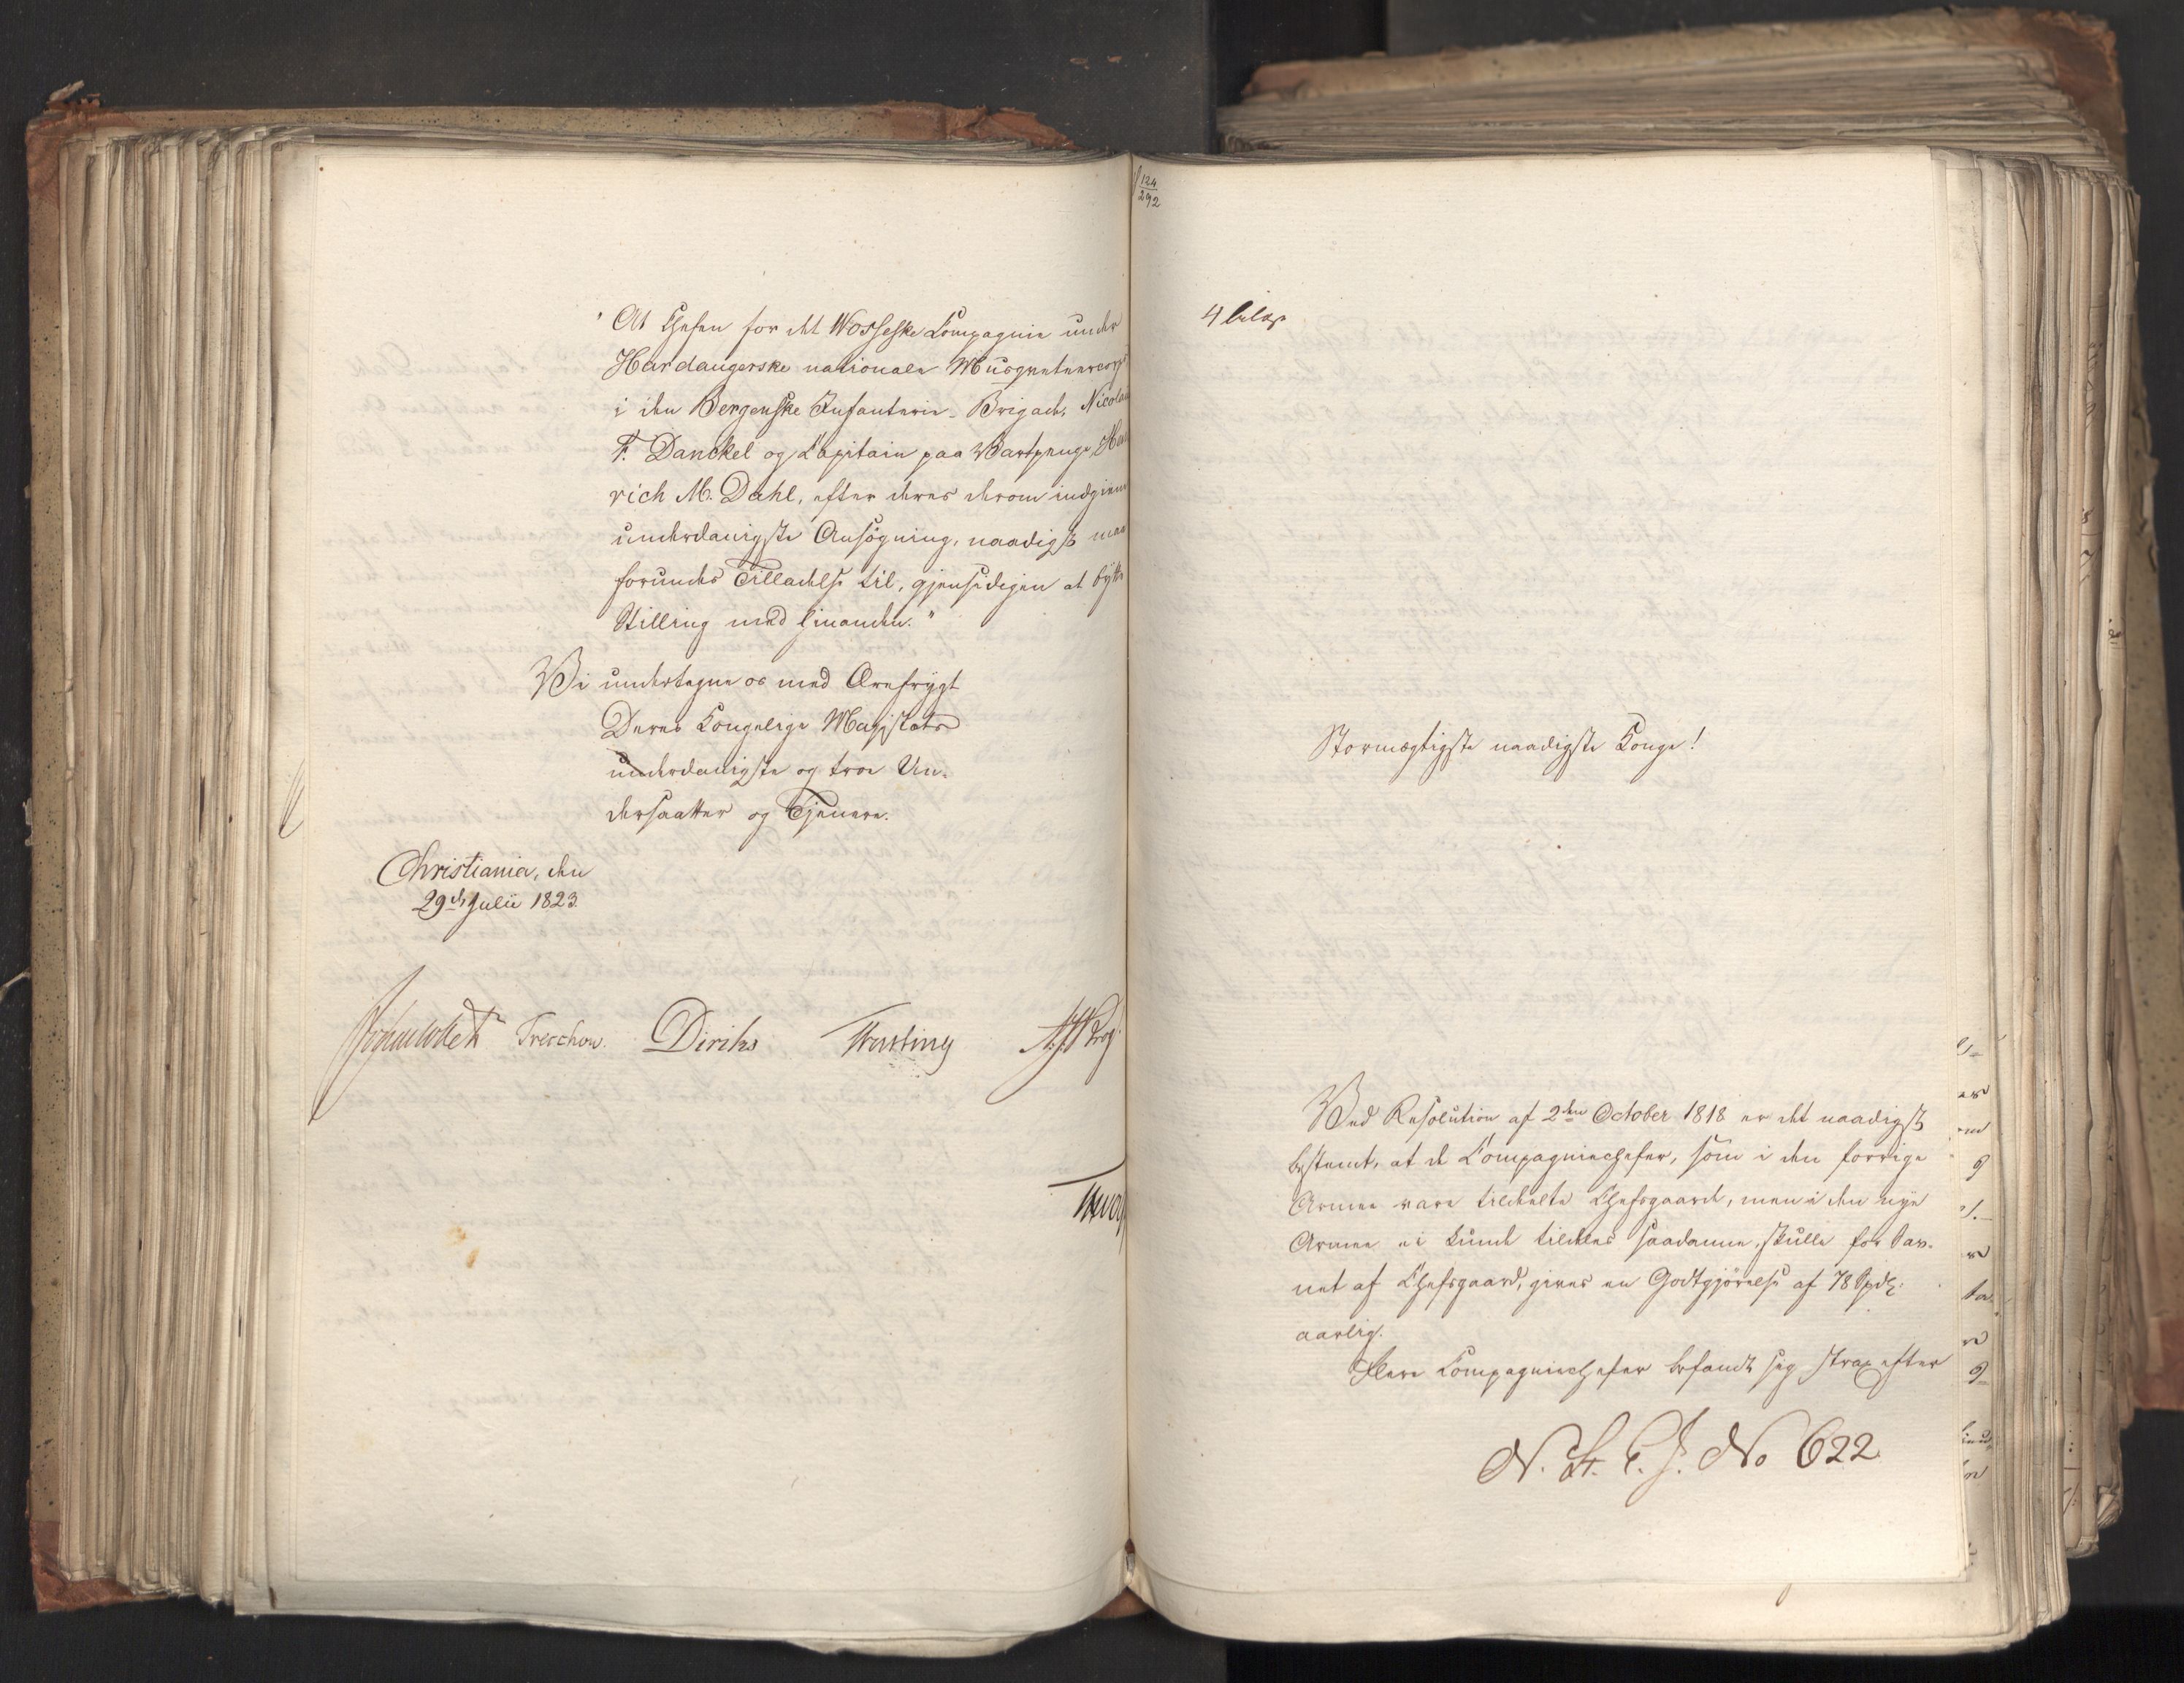 "At Chefen for det Wosseske Compagnie under
Hardangerske nationale Musqueteercorps
i den Bergenske Infanterie-Brigade, Nicolai
F. Danckel og Capitain paa Vartpenge, Hen
rich M. Dahl, efter deres derom indgivne
underdanigste Ansøgning, naadigst maa
forundes Tilladelse til, gjensidigen at bytte
Stilling med hinanden."
Vi undertegne os med Ærefrygt
Deres Kongelige Majestæts
underdanigste og troe Un-
dersaatter og Tjenere.
Christiania, den
29de Julii 1823.
Treschow. Diriks Fasting
124
292
4 bilag
Stormægtigste naadigste Konge!
Ved Resolution af 2den October 1818 er det naadigst
bestemt, at de Compagniechefer, som i den forrige
Armee vare tildeelte Chefsgaarde, men i den nye
Armee ei kunde tildeles saadanne, skulle for Sav-
net af Chefsgaard, gives en Godtgjørelse af 78 Spdlr.
aarlig.
Flere Compagniechefer befandt sig strax efter
N. St. E. J. No 622.